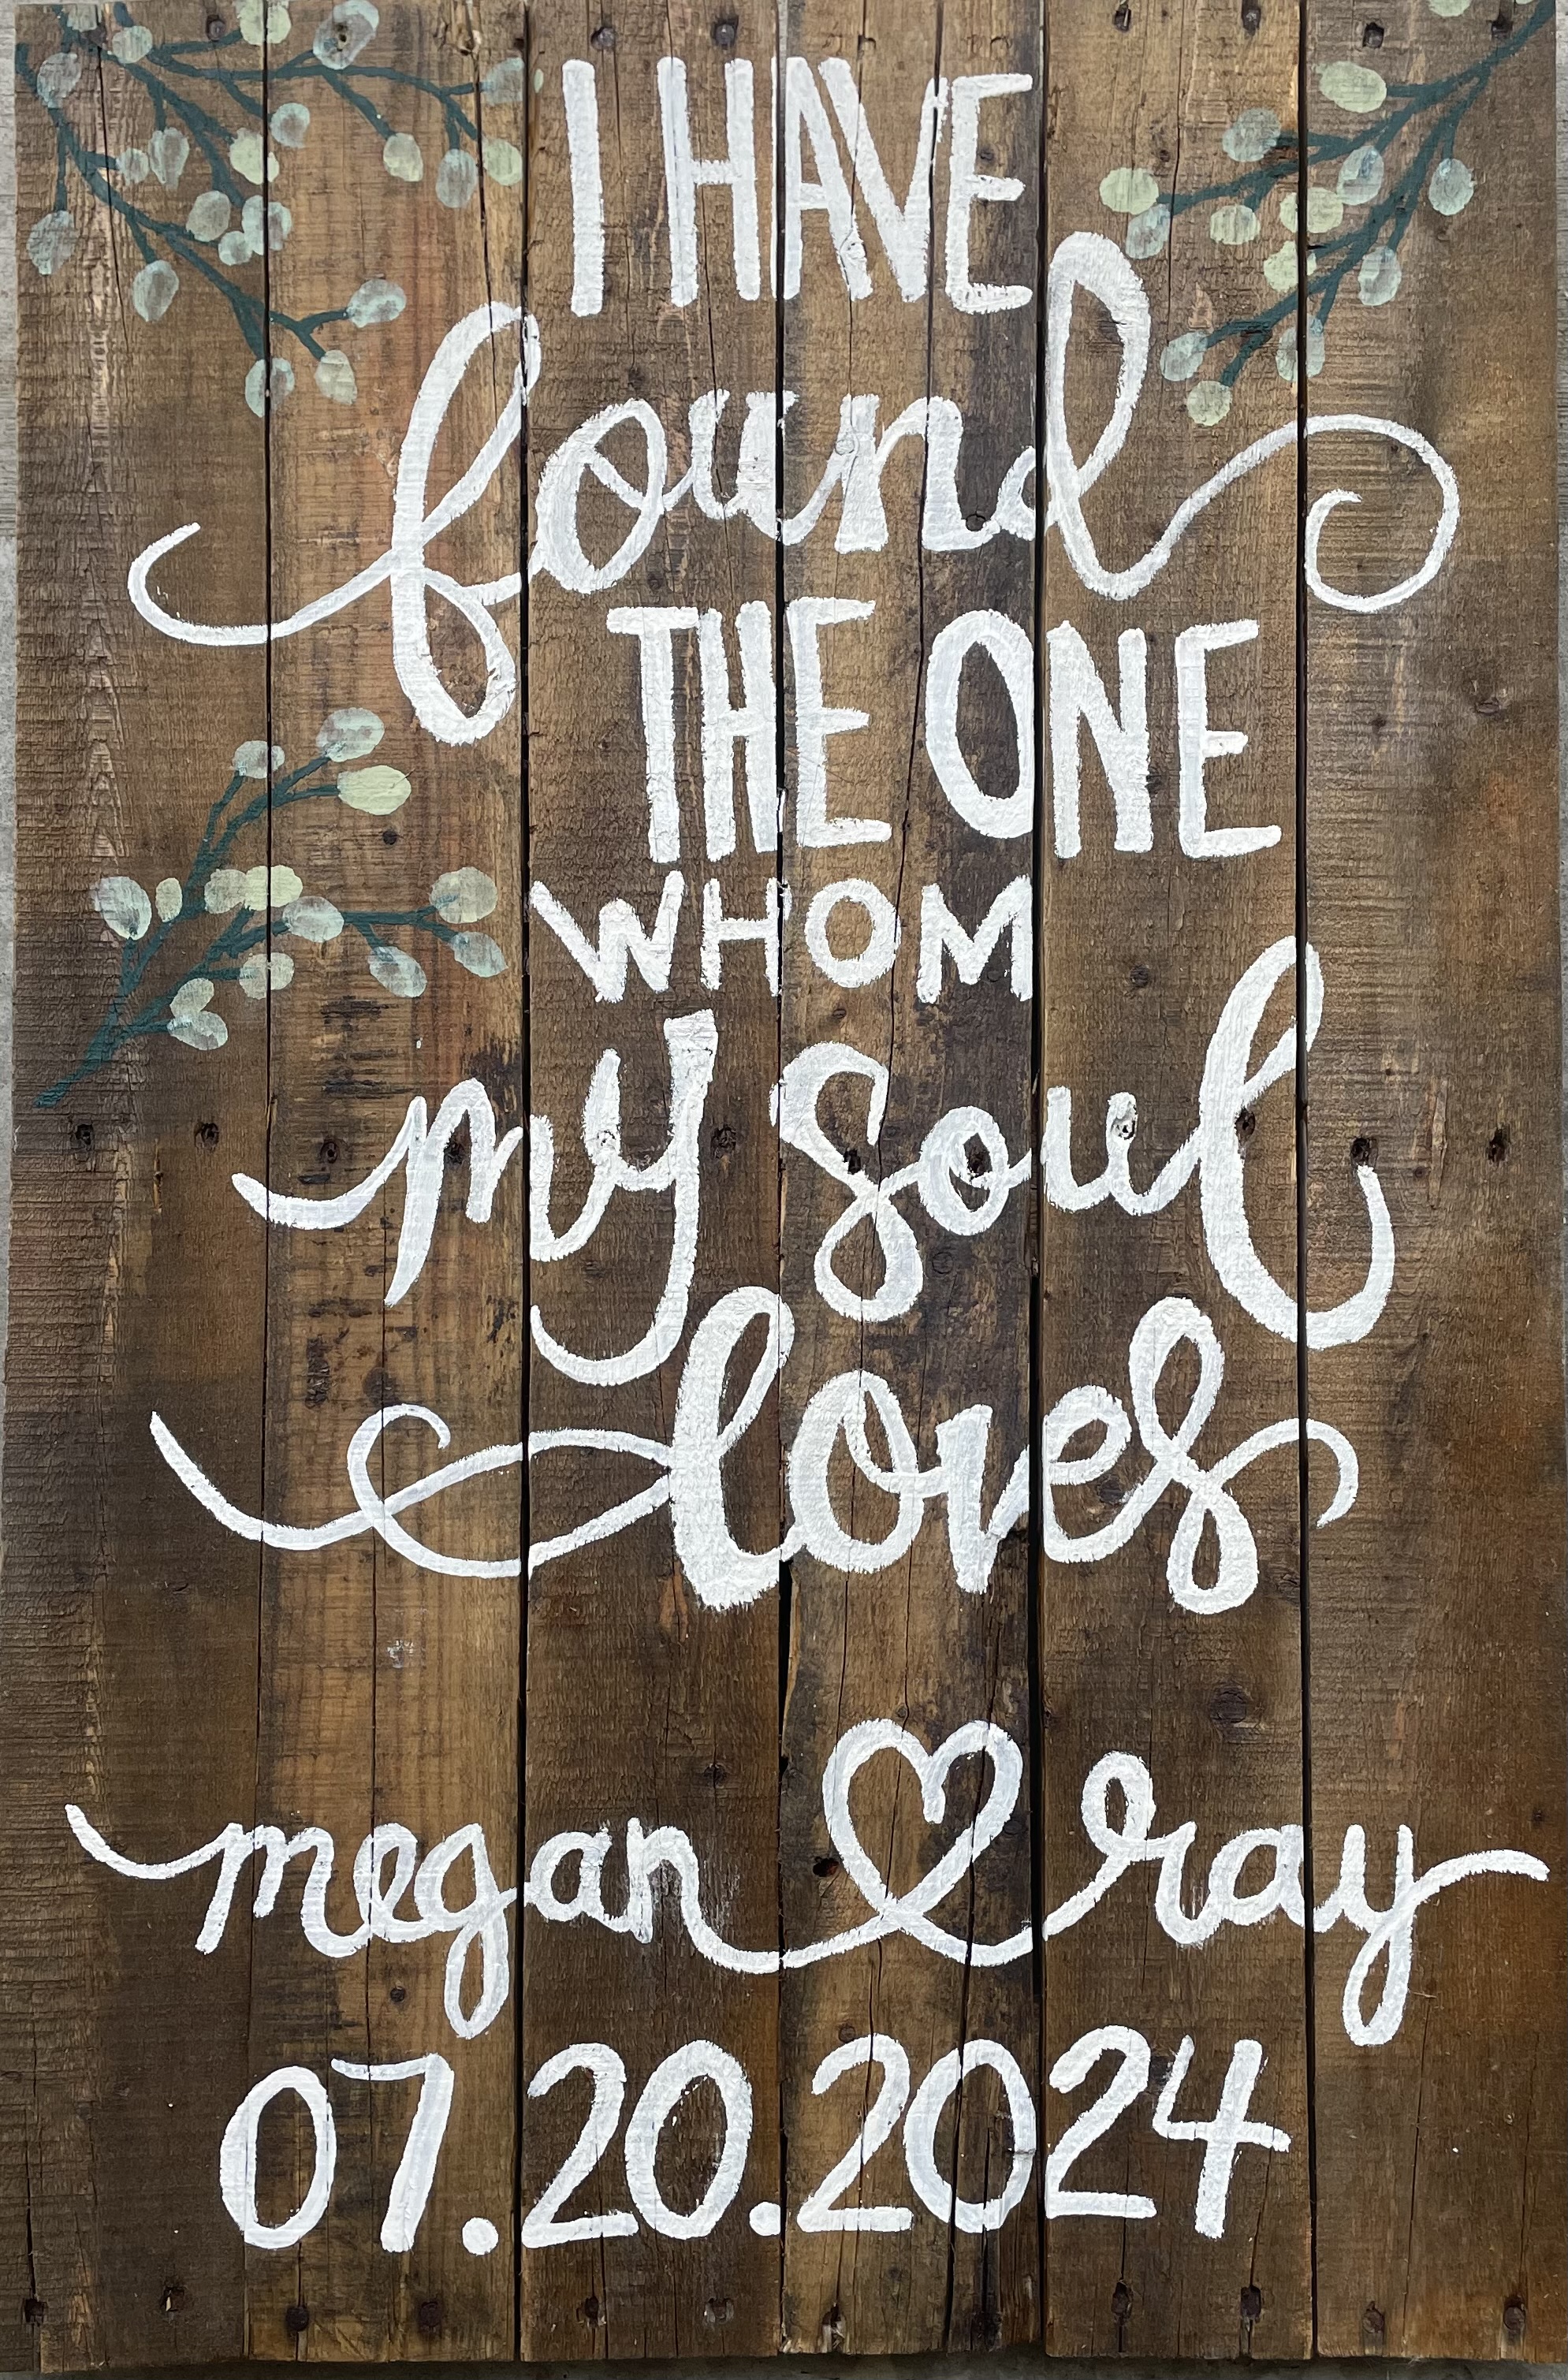 I HAVE
found
THE ONE
WHOM
my soul
loves
megan ray
07.20.2024